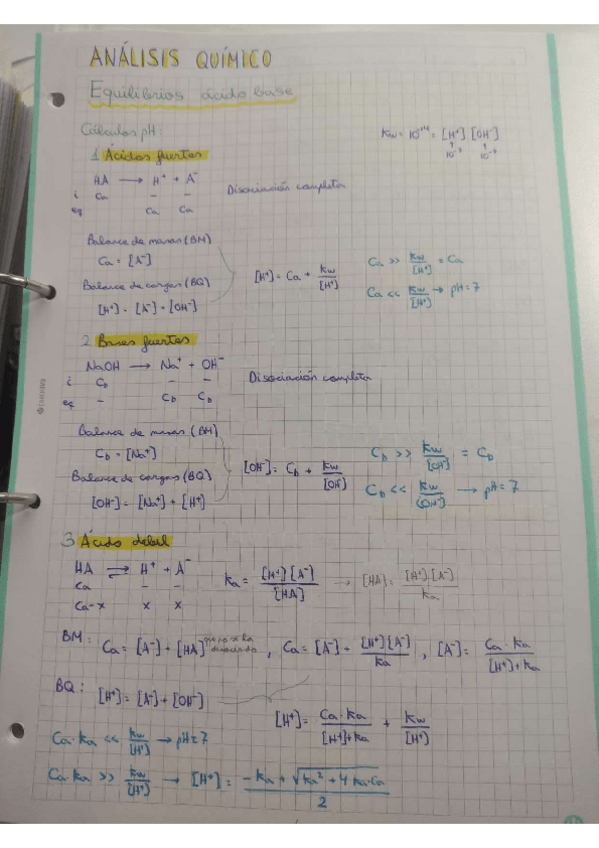 ANÁLISIS QUÍMICO
Equilibrios ácido base
Cálculos pH:
Kw = 10⁻¹⁴ = [H⁺] [OH⁻]
10⁻⁷ 10⁻⁷
1 Ácidos fuertes
HA → H⁺ + A⁻
i Ca - -
eq Ca Ca
Disociación completa
Balance de masas (BM)
Ca = [A⁻]
Balance de cargas (BQ)
[H⁺] = [A⁻] + [OH⁻]
[H⁺] = Ca + Kw/[H⁺]
Ca >> Kw/[H⁺] = Ca
Ca << Kw/[H⁺] → pH = 7
2 Bases fuertes
NaOH → Na⁺ + OH⁻
i Cb - -
eq - Cb Cb
Disociación completa
Balance de masas (BM)
Cb = [Na⁺]
Balance de cargas (BQ)
[OH⁻] = [Na⁺] + [H⁺]
[OH⁻] = Cb + Kw/[OH⁻]
Cb >> Kw/[OH⁻] = Cb
Cb << Kw/[OH⁻] → pH = 7
3 Ácido débil
HA ⇌ H⁺ + A⁻
Ca - -
Ca-x x x
Ka = [H⁺][A⁻]/[HA] → [HA] = [H⁺][A⁻]/Ka
BM: Ca = [A⁻] + [HA] , Ca = [A⁻] + [H⁺][A⁻]/Ka , [A⁻] = Ca·Ka/[H⁺]+Ka
BQ: [H⁺] = [A⁻] + [OH⁻]
[H⁺] = Ca·Ka/[H⁺]+Ka + Kw/[H⁺]
Ca·Ka << Kw/[H⁺] → pH = 7
Ca·Ka >> Kw/[H⁺] → [H⁺] = -Ka + √Ka² + 4Ka·Ca/2